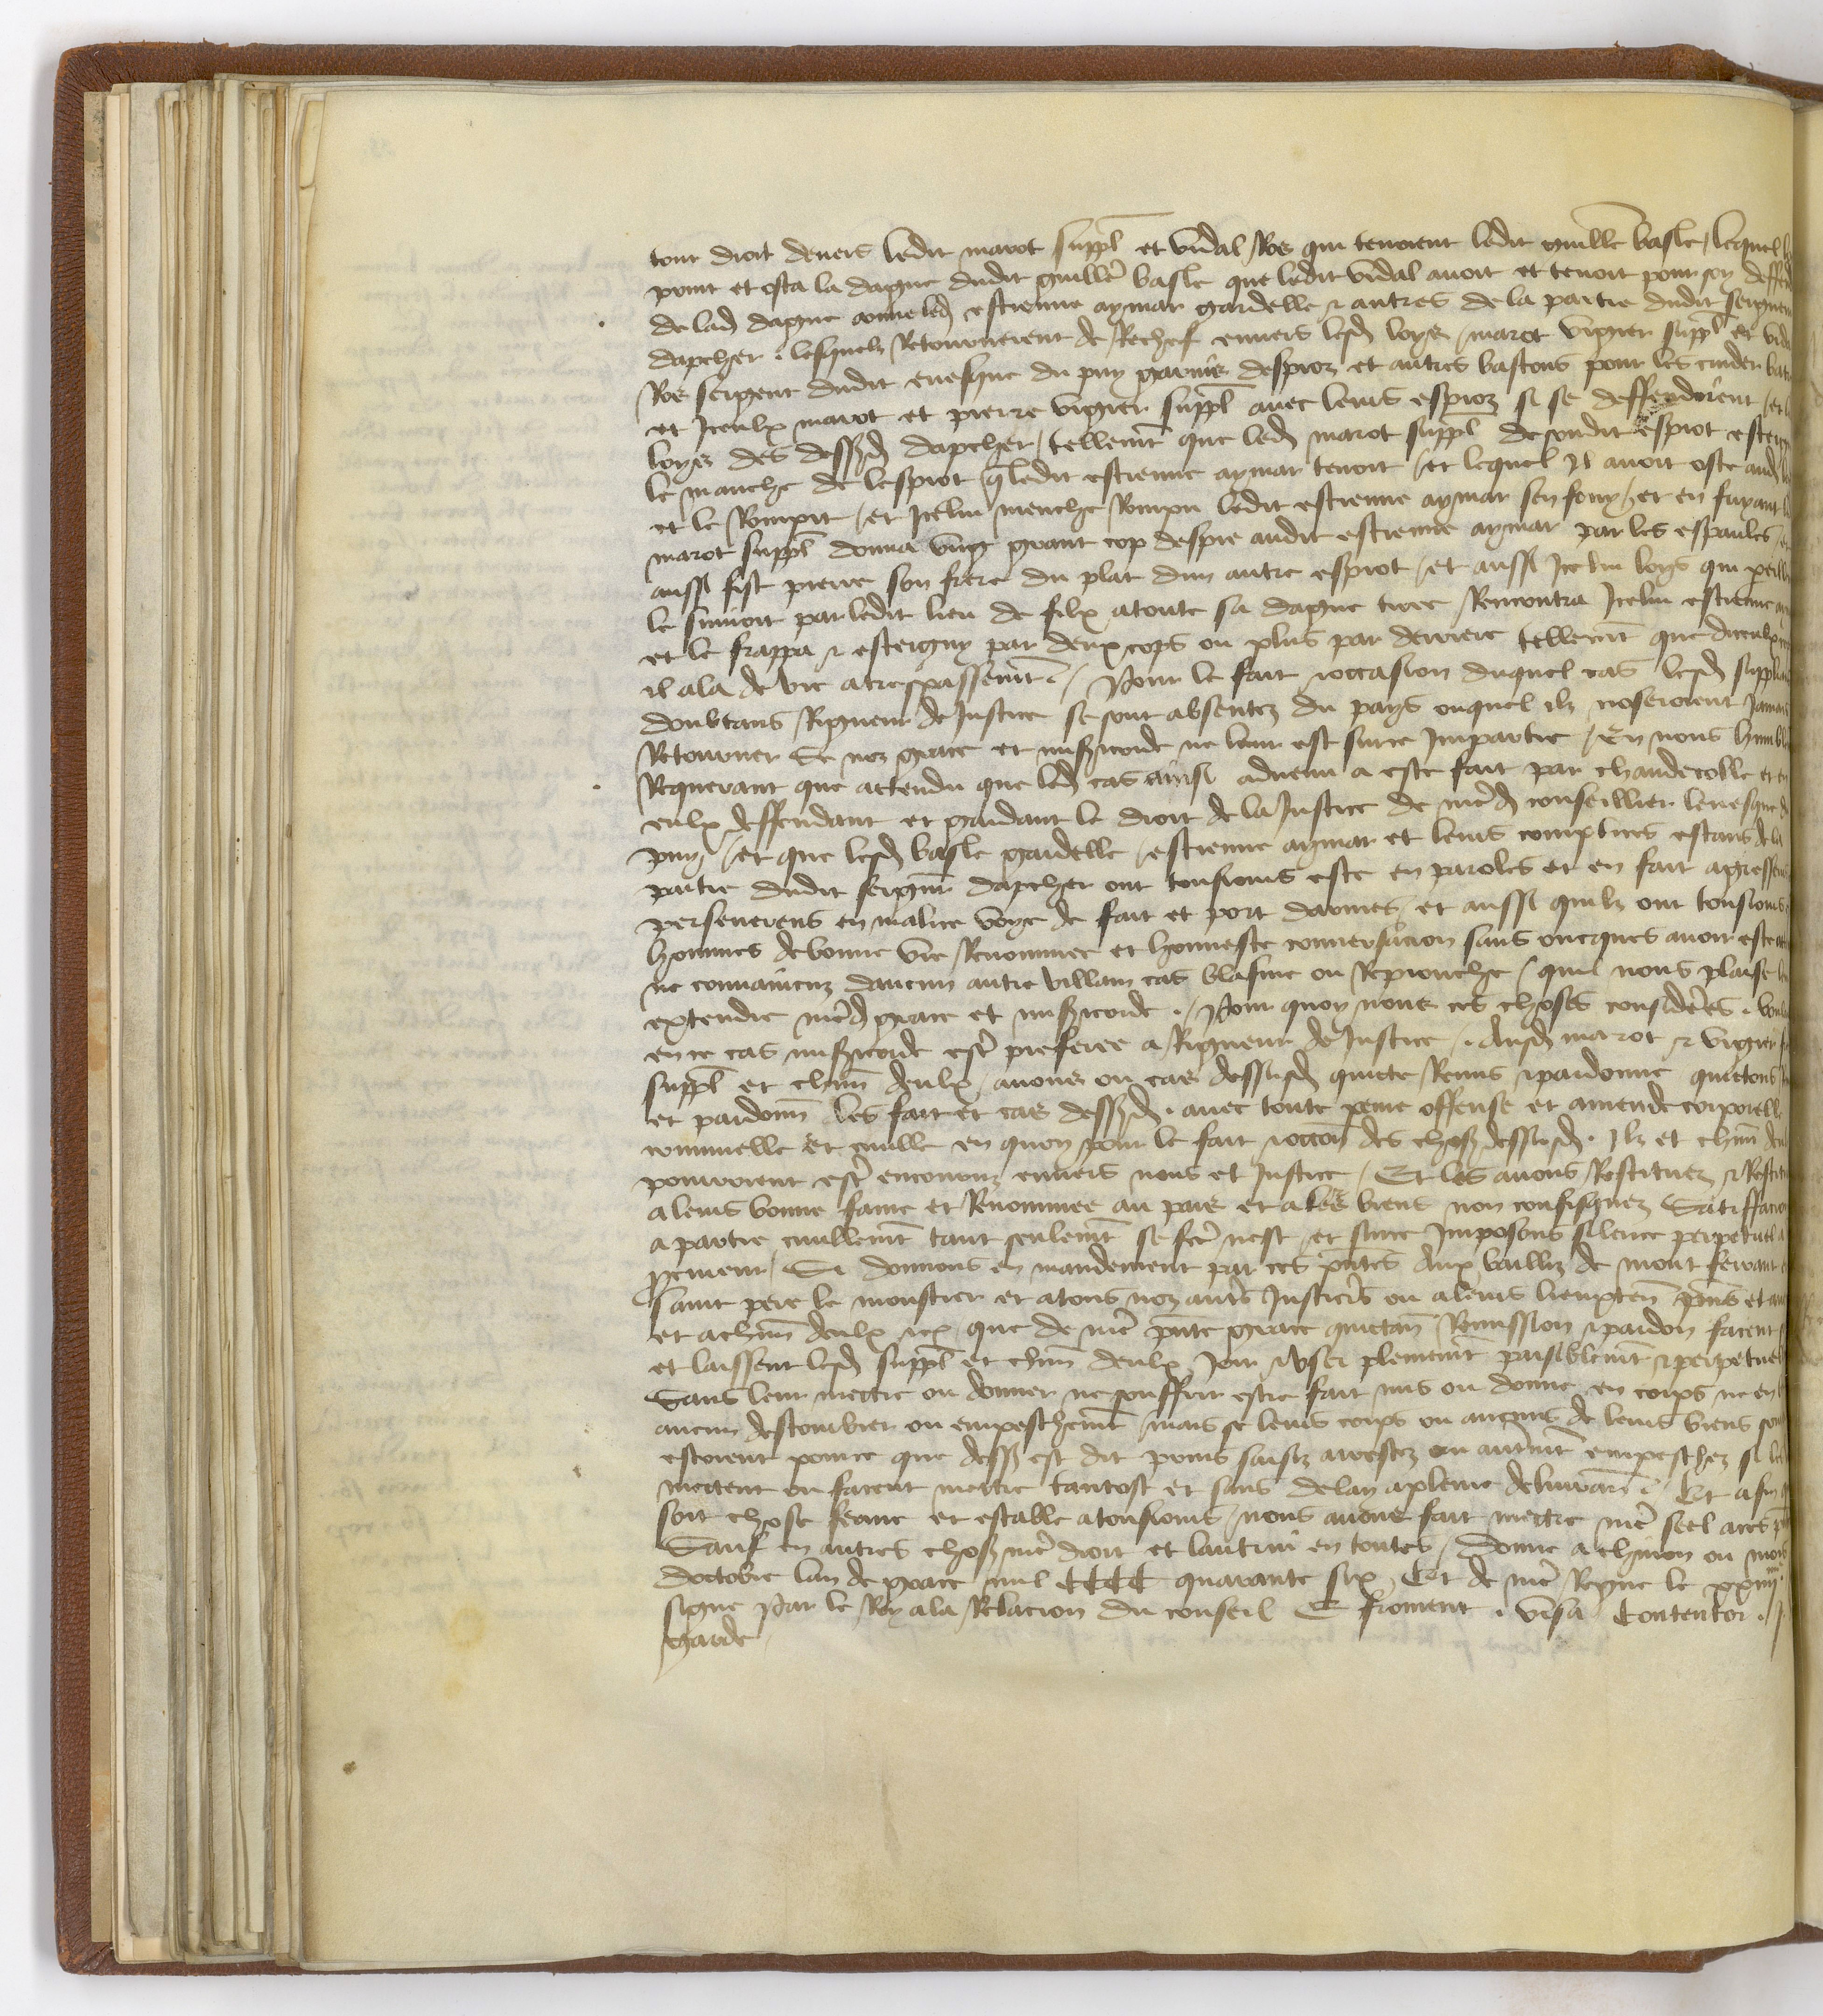 tout droit devers ledit marot suppl et vidal Ros qui tenoient ledit guille basle / lequel
point et osta la dague dudit guille basle que ledit vidal avoit et tenoit pour soy deff
de lad dague contre led estienne aymar gardelle et autres de la partie dudit seigneur
dapcher . lesquelz Retournerent de Rechef envers lesd loys / marot vigier suppl et vid
Ros sergent dudit evesque du puy garniz despioz et autres bastons pour les cuider bat
et Iceulx marot et pierre vigier suppl avec leurs espioz si se deffendirent / et
loys des dessusd dapcher / tellement que led marot suppl de sondit espiot
le manche de lespiot q ledit estienne aymar tenoit / et lequel Il avoit oste aud
et le Rompit / et Icelui menche Rompu ledit estienne aymar sen fouy / et en fuyant
marot suppl donna ung grant cop despie audit estienne aymar par les espaules /
aussi fist pierre son frere du plat dun autre espiot / et aussi Icelui loys qui
le suivoit par ledit lieu de filx atoute sa dague tiree Rencontra Icelui estienne
et le frappa et esteigny par deux cops ou plus par derriere tellement que diceulx
il ala de vie a trespassement . / Pour le fait et occasion duquel cas lesd suppl
doubtans Rigueur de Justice se sont absentez du pays ouquel ilz noseroient Jamais
Retourner Se noz grace et misericorde ne leur est surce Impartie / En nous humbl
Requerant que attendu que led cas ainsi advenu a este fait par chaudecolle et en
eulx deffendant et gardant le droit de la Justice de nred conseillier levesque du
puy / et que lesd basle gardelle / estienne aymar et leurs complices estans de la
partie dudit seigneur dapcher ont tousiours este en paroles et en fait agresseurs
perseverens en malice voye de fait et port darmes / et aussi quilz ont tousiours
hommes de bonne vie Renommee et honneste conversacion sans oncques avoir este
ne convaincuz daucun autre villain cas blasme ou Reprouche / quil nous plaise
extendre nred grace et misericorde . / Pour quoy nous ces choses considerees .
en ce cas misericorde estre preferee a Rigueur de Justice / . Ausd marot et vigier
suppl et chun deulx / avons ou cas dessusd quicte Remis et pardonne quictons
et pardonn les fait et cas dessusd . avec toute peine offense et amende corporelle
criminelle et civille en quoy pour le fait et occasion des choses dessusd . Ilz et chun
pourroient estre encouruz envers nous et Justice / Et les avons Restituez et Restit
a leurs bonne fame et Renommee au pais et a leurs biens non confisquez Satiffacion
a partie civillement tant seulement se fcte nest / et surce Imposons silence perpetuel
Si donnons en mandement par ces pntes Aux bailliz de mont ferrant
saint pere le monstier et atous noz autres Justiciers ou a leurs lieuxten pns et
et achun deulx que de nre pnte grace quictan Remission et pardon facent
et laissent lesd suppl et chun deulx Joir et user plenement paisiblement et perpetuel
Sans leur mectre ou donner ne souffrir estre fait mis ou donne en corps ne en
aucun destourbier ou empeschement / mais se leurs corps ou aucuns de leurs biens
estoient pource que dessus est dit prins saisiz arrestez ou autrement empeschez si
mectent ou facent mectre tantost et sans delay a pleine delivrance / Et afin
soit chose ferme et estable atousiours / nous avons fait mectre nre seel a ces
Sauf en autres choses nre droit et lautrui en toutes / Donne a chinon ou mois
doctobre lan de grace mil CCCC quarante six Et de nre Regne le xxiiiie
signe Par le Roy a la Relacion du conseil E froment . visa Contentor .
charde